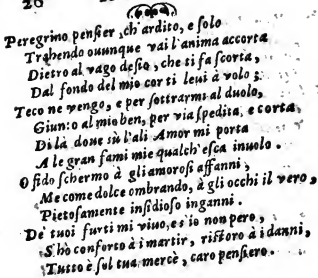 20
Peregrino pensier, ch'ardito, e solo
Trahendo ouunque vai l'anima accorta
Dietro al vago desio, che ti fa scorta,
Dal fondo del mio cor ti leui à volo;
Teco ne vengo, e per sottrarmi al duolo,
Giunto al mio ben, per via spedita, e corta,
Di là doue sù l'ali Amor mi porta
A le gran fami mie qualch'esca inuolo.
O fido schermo à gli amorosi affanni,
Me come dolce ombrando, à gli occhi il vero,
Pietosamente insidioso inganni.
De' tuoi furti mi viuo, e s'io non pero,
S'hò conforto à i martir, ristoro à i danni,
Tutto è sol tua mercè, caro pensiero.